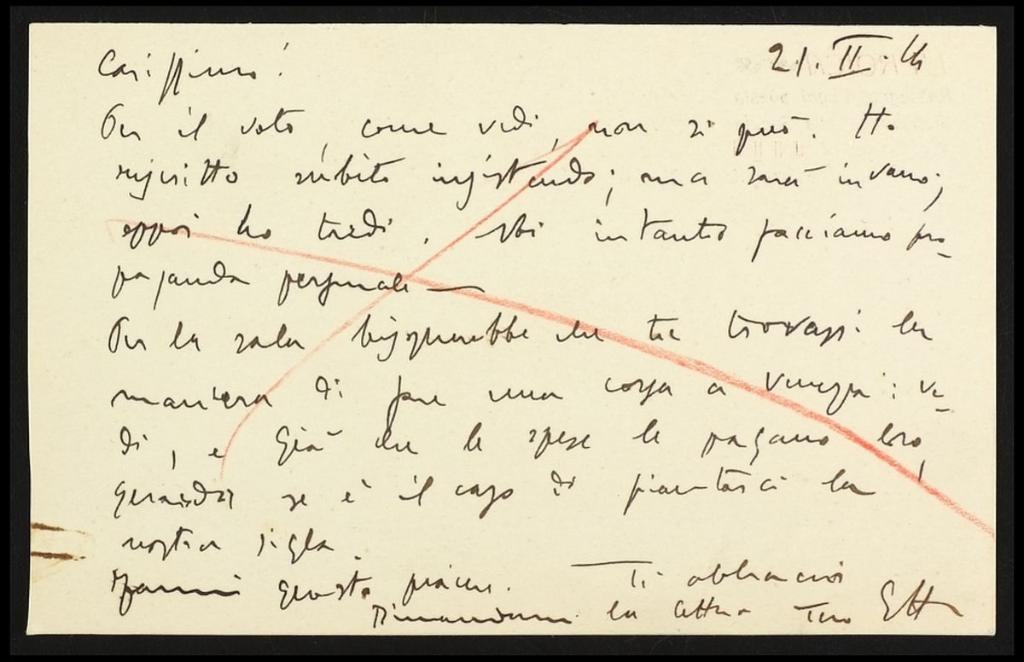 Carissimo! 21.II.
Per il voto, come vedi, non si può. Ho
riscritto subito insistendo; ma sarà invano;
eppoi ho tredi. Noi intanto facciamo pro-
paganda personale —
Per la sala bisognerebbe che tu trovassi la
maniera di fare una corsa a Venezia: ve-
di, e già che le spese le pagano loro,
guarda se è il caso di piantarci la
nostra sigla.
Fammi questo piacere. Ti abbraccio
Rimandami la lettera Tuo